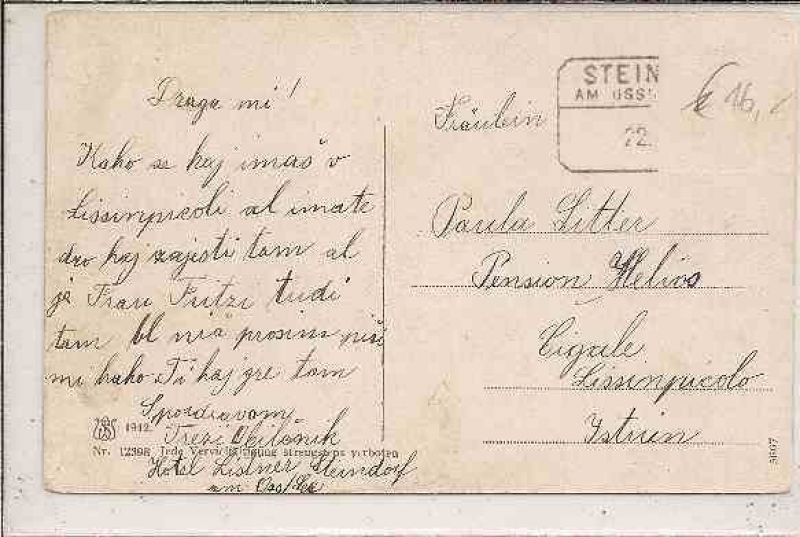 Draga mi!
Kako se kaj imaš v
Lissinpicoli al imate
dro kaj zajesti tam al
je Frau Fritzi tudi
tam bl niä prosim piši
mi kako Ti kaj gre tam
Spozdravam
Trezi
Hotel Listner Steindorf
am Oss/See
1912.
Nr. 12398 Jede Vervielfältigung strengstens verboten
STEIN
AM OSS
22.
€ 16,-
Fräulein
Paula Litter
Pension Helios
Cigale
Lissinpicolo
Istrien